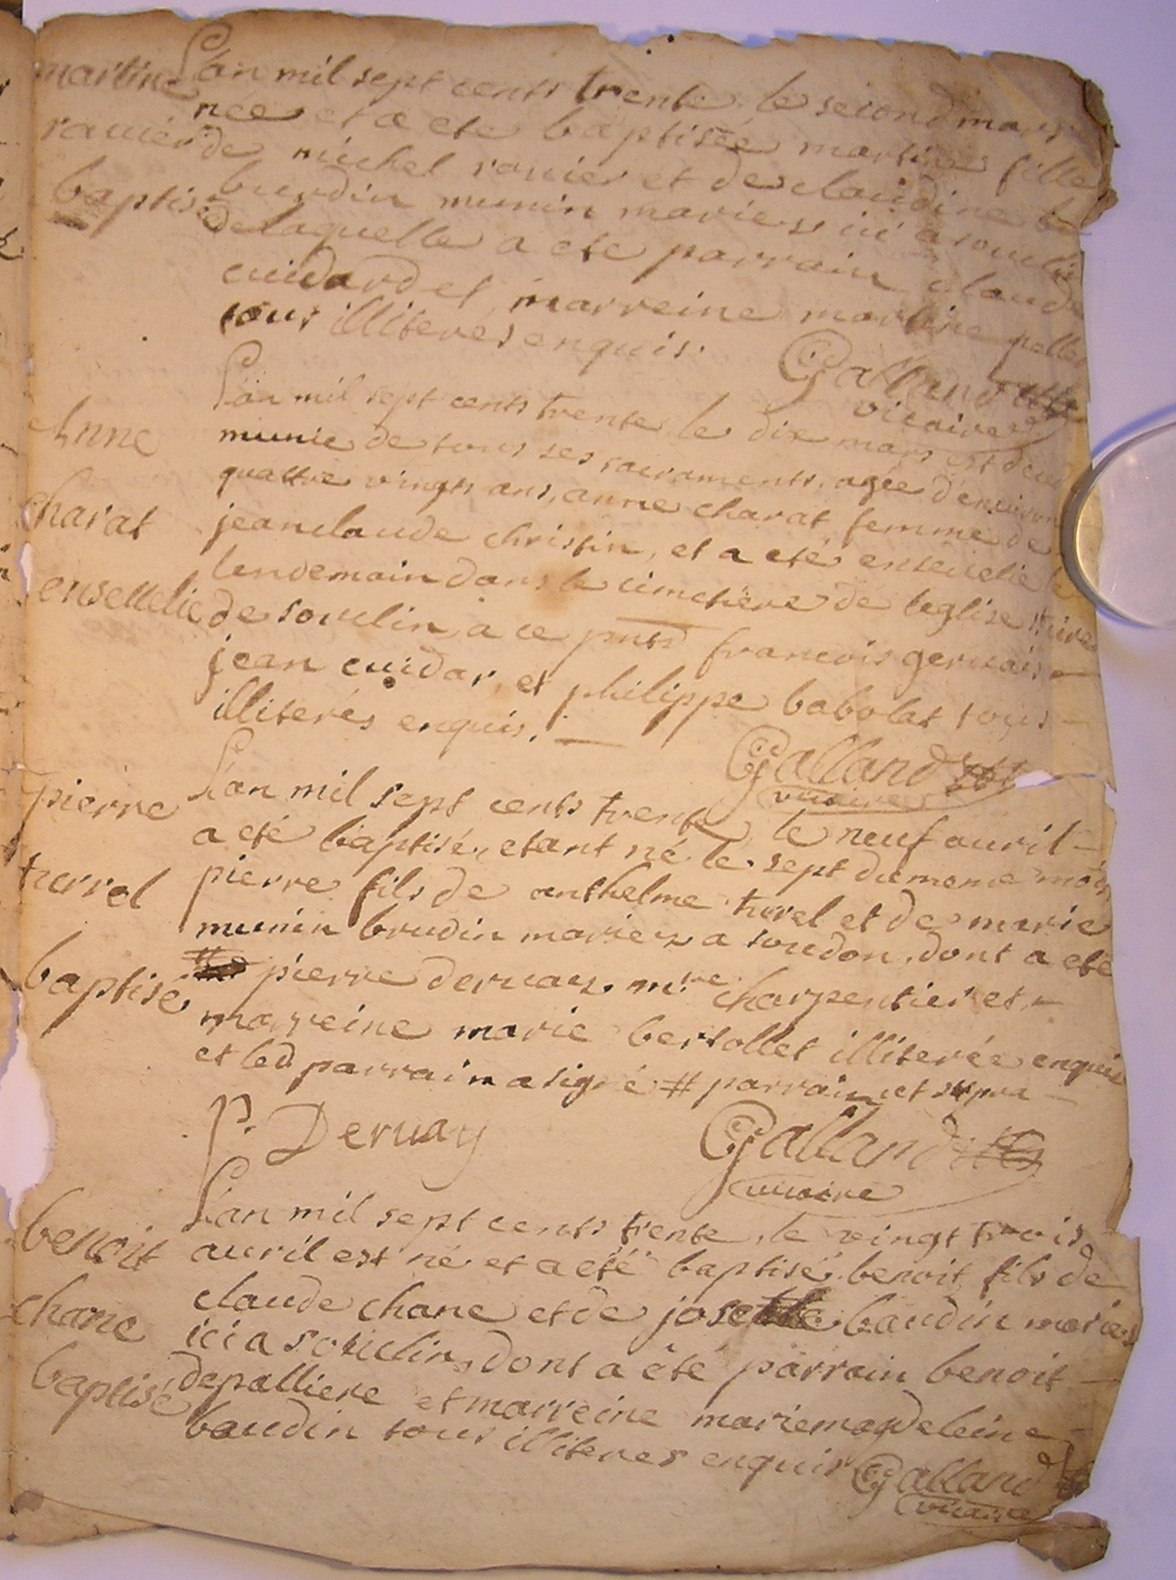 martine
ravier
baptisé
L'an mil sept cents trente, le second mars
née et a eté baptisée martine fille
de michel ravier et de claudine
burdin munin mariers ici a souclin
de laquelle a eté parrain claude
cuidard et marreine martine
tous illiterés enquis.
Galland
vicaire
Anne
charat
ensevelie
L'an mil sept cents trente, le dix mars est
munie de tous ses sacraments, agée d'environ
quattre vingts ans, anne charat femme de
jean claude christin, et a eté ensevelie le
lendemain dans le cimetiere de l'eglise
de souclin, a ce pnts francois gervais
jean cuidar, et philippe babolat tous
illiterés enquis.
Galland
vicaire
pierre
turrel
baptisé
L'an mil sept cents trente, le neuf auril
a eté baptisé, etant né le sept du meme mois
pierre fils de anthelme turel et de marie
munin brudin mariez a soudon, dont a eté
# pierre deruay, m.re charpentier et
marreine marie bertollet illiterée enquise
et led parrain a signé # parrain ut supra
P. Deruay
Galland
vicaire
benoit
chane
baptisé
L'an mil sept cents trente, le vingt trois
auril est né et a eté baptisé benoit fils de
claude chane et de josette baudin mariers
ici a souclin, dont a été parrain benoit
depalliere et marreine marie magdeleine
baudin tous illiteres enquis
Galland
vicaire